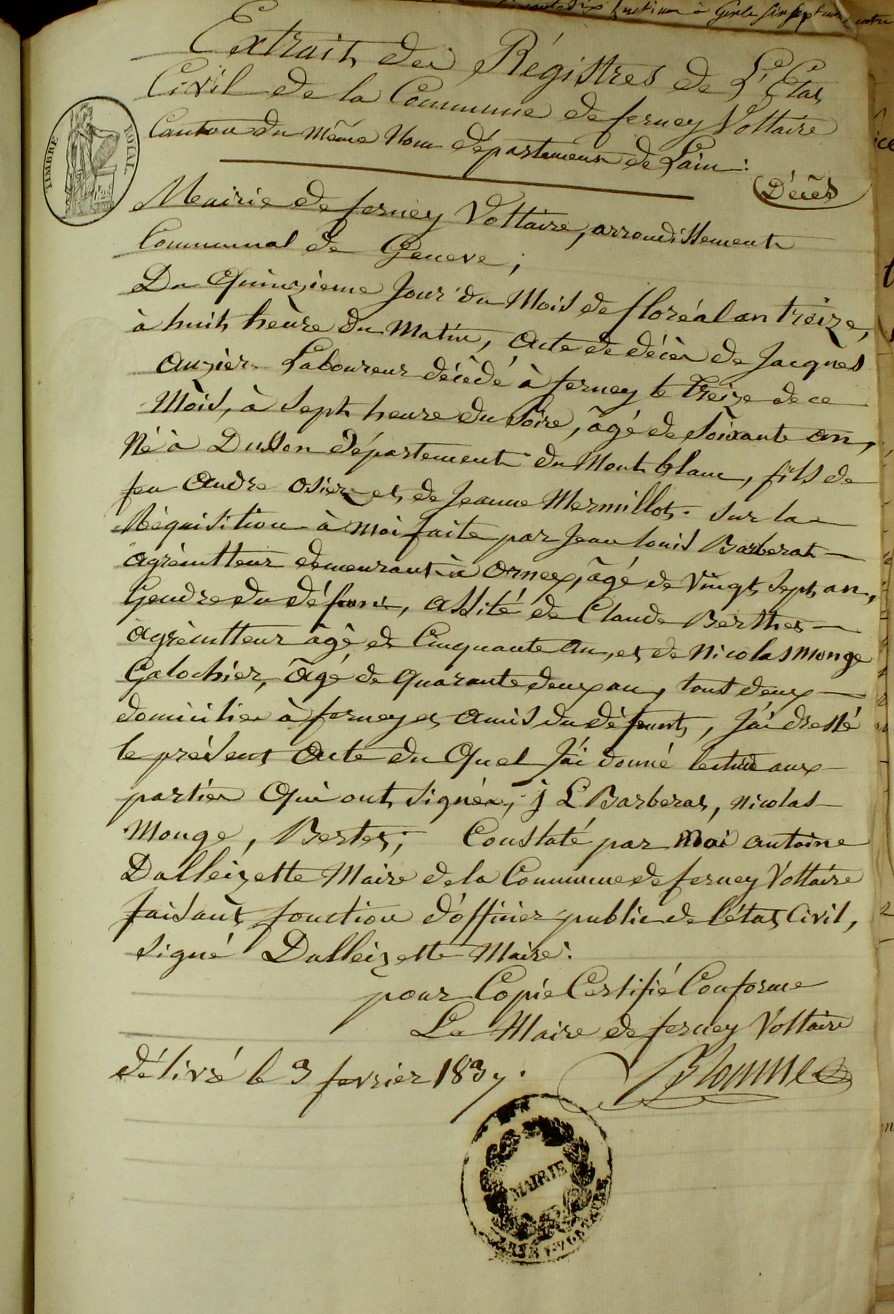 Extrait des Régistres de L'Etat
Civil de la Commune de ferney Voltaire
Canton du même Nom département de Lain :
TIMBRE ROYAL
Décès
Mairie de ferney Voltaire, arrondissement
Communal de Geneve ;
Du Quinzieme Jour du Mois de floréal an treize,
à huit heure du matin, acte de décès de Jacques
Auzier Laboureur décédé à ferney le treize de ce
Mois, à sept heure du soire, âgé de soixante an,
Né à département du Mont blanc, fils de
feu andre osier et de Jeanne Mermillot. sur la
Réquisition à moi faite par Jean louis Barberat
agricultteur demeurant à ornex, âgé de vingt sept an,
Gendre du défunt, assité de Claude Berthet
agricultteur âgé de Cinquante an, et de Nicolas Monge
Galochier, âgé de quarante deux an, tous deux
domicilié à ferney et amis du défunt, J'ai dressé
le présent acte du Quel J'ai donné lecture aux
parties Qui ont signées, j L Barberat, Nicolas
Monge, Bertet ; Constaté par moi antoine
Dalleizette Maire de la Commune de ferney Voltaire
faisant fonction d'officier public de l'état Civil,
signé Dalleizette Maire.
pour Copie Certifié Conforme
Le Maire de ferney Voltaire
délivré le 3 fevrier 1837.
MAIRIE